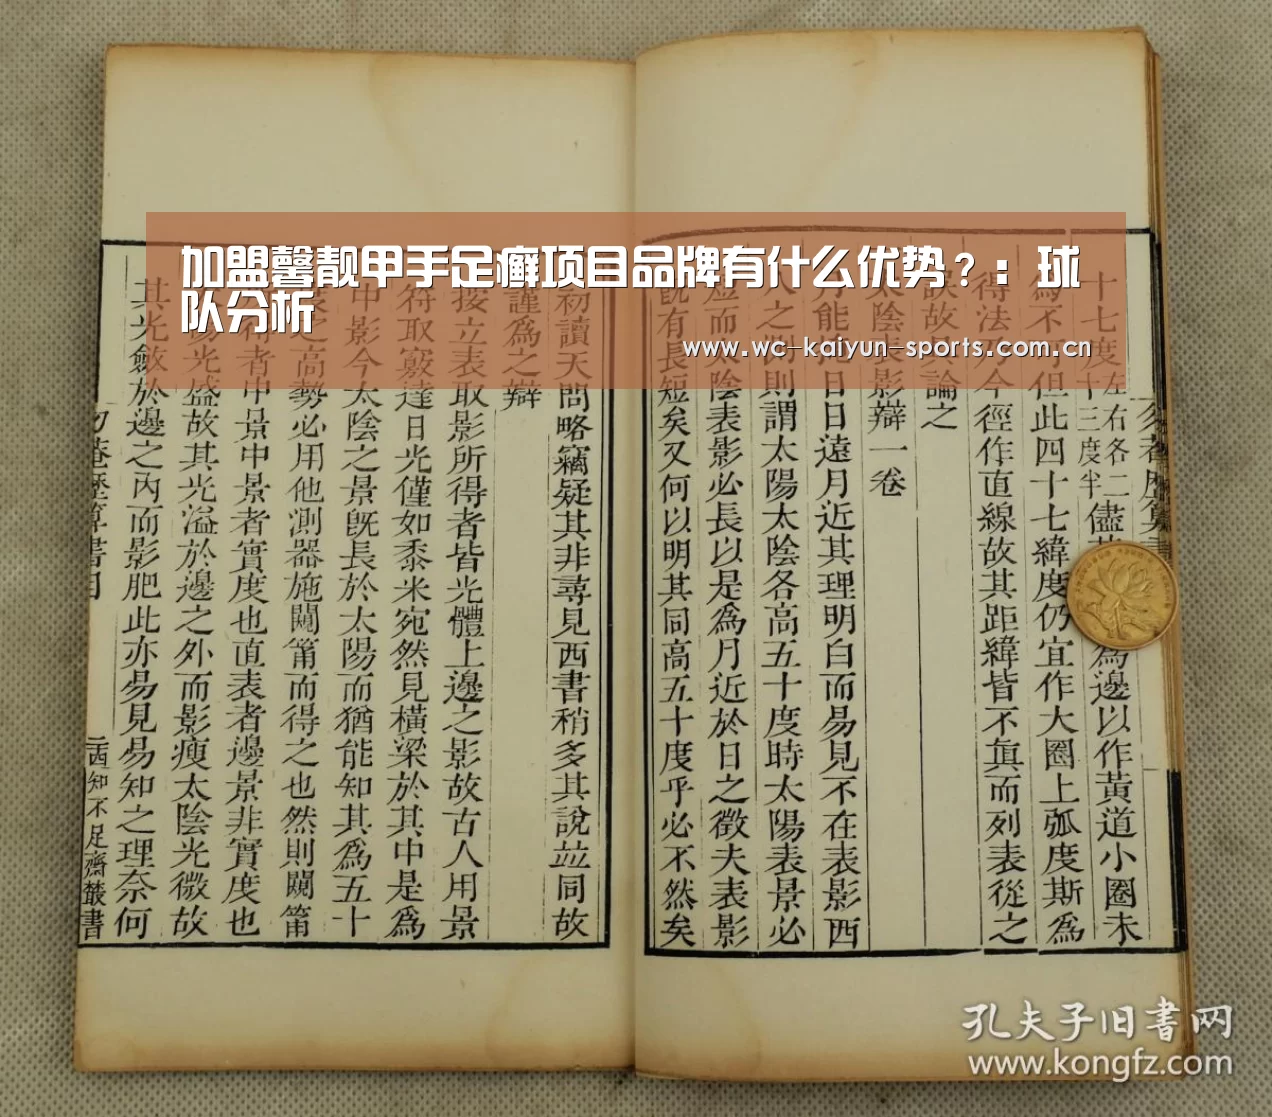 加盟馨靓甲手足癣项目品牌有什么优势？：球
队分析
www.wc-kaiyun-sports.com.cn
為邊以作黃道小圈未
但此四十七緯度仍宜作大圈上弧度斯為
今徑作直線故其距緯皆不真而列表從之
故論之
太陰表影辯一卷
日日遠月近其理明白而易見不在表影西
則謂太陽太陰各高五十度時太陽表景必
短而太陰表影必長以是為月近於日之徵夫表影
既有長短矣又何以明其同高五十度乎必不然矣
初讀天問略竊疑其非尋見西書稍多其說並同故
謹為之辯
接立表取影所得者皆光體上邊之影故古人用景
符取竅達日光僅如黍米宛然見橫梁於其中是為
中影今太陰之景既長於太陽而猶能知其為五十
之高勢必用他測器施闚筩而得之也然則闚筩
者中景中景者實度也直表者邊景非實度也
光盛故其光溢於邊之外而影瘦太陰光微故
其光斂於邊之內而影肥此亦易見易知之理奈何
勿菴歷算書目
知不足齋叢書
孔夫子旧書网
www.kongfz.com